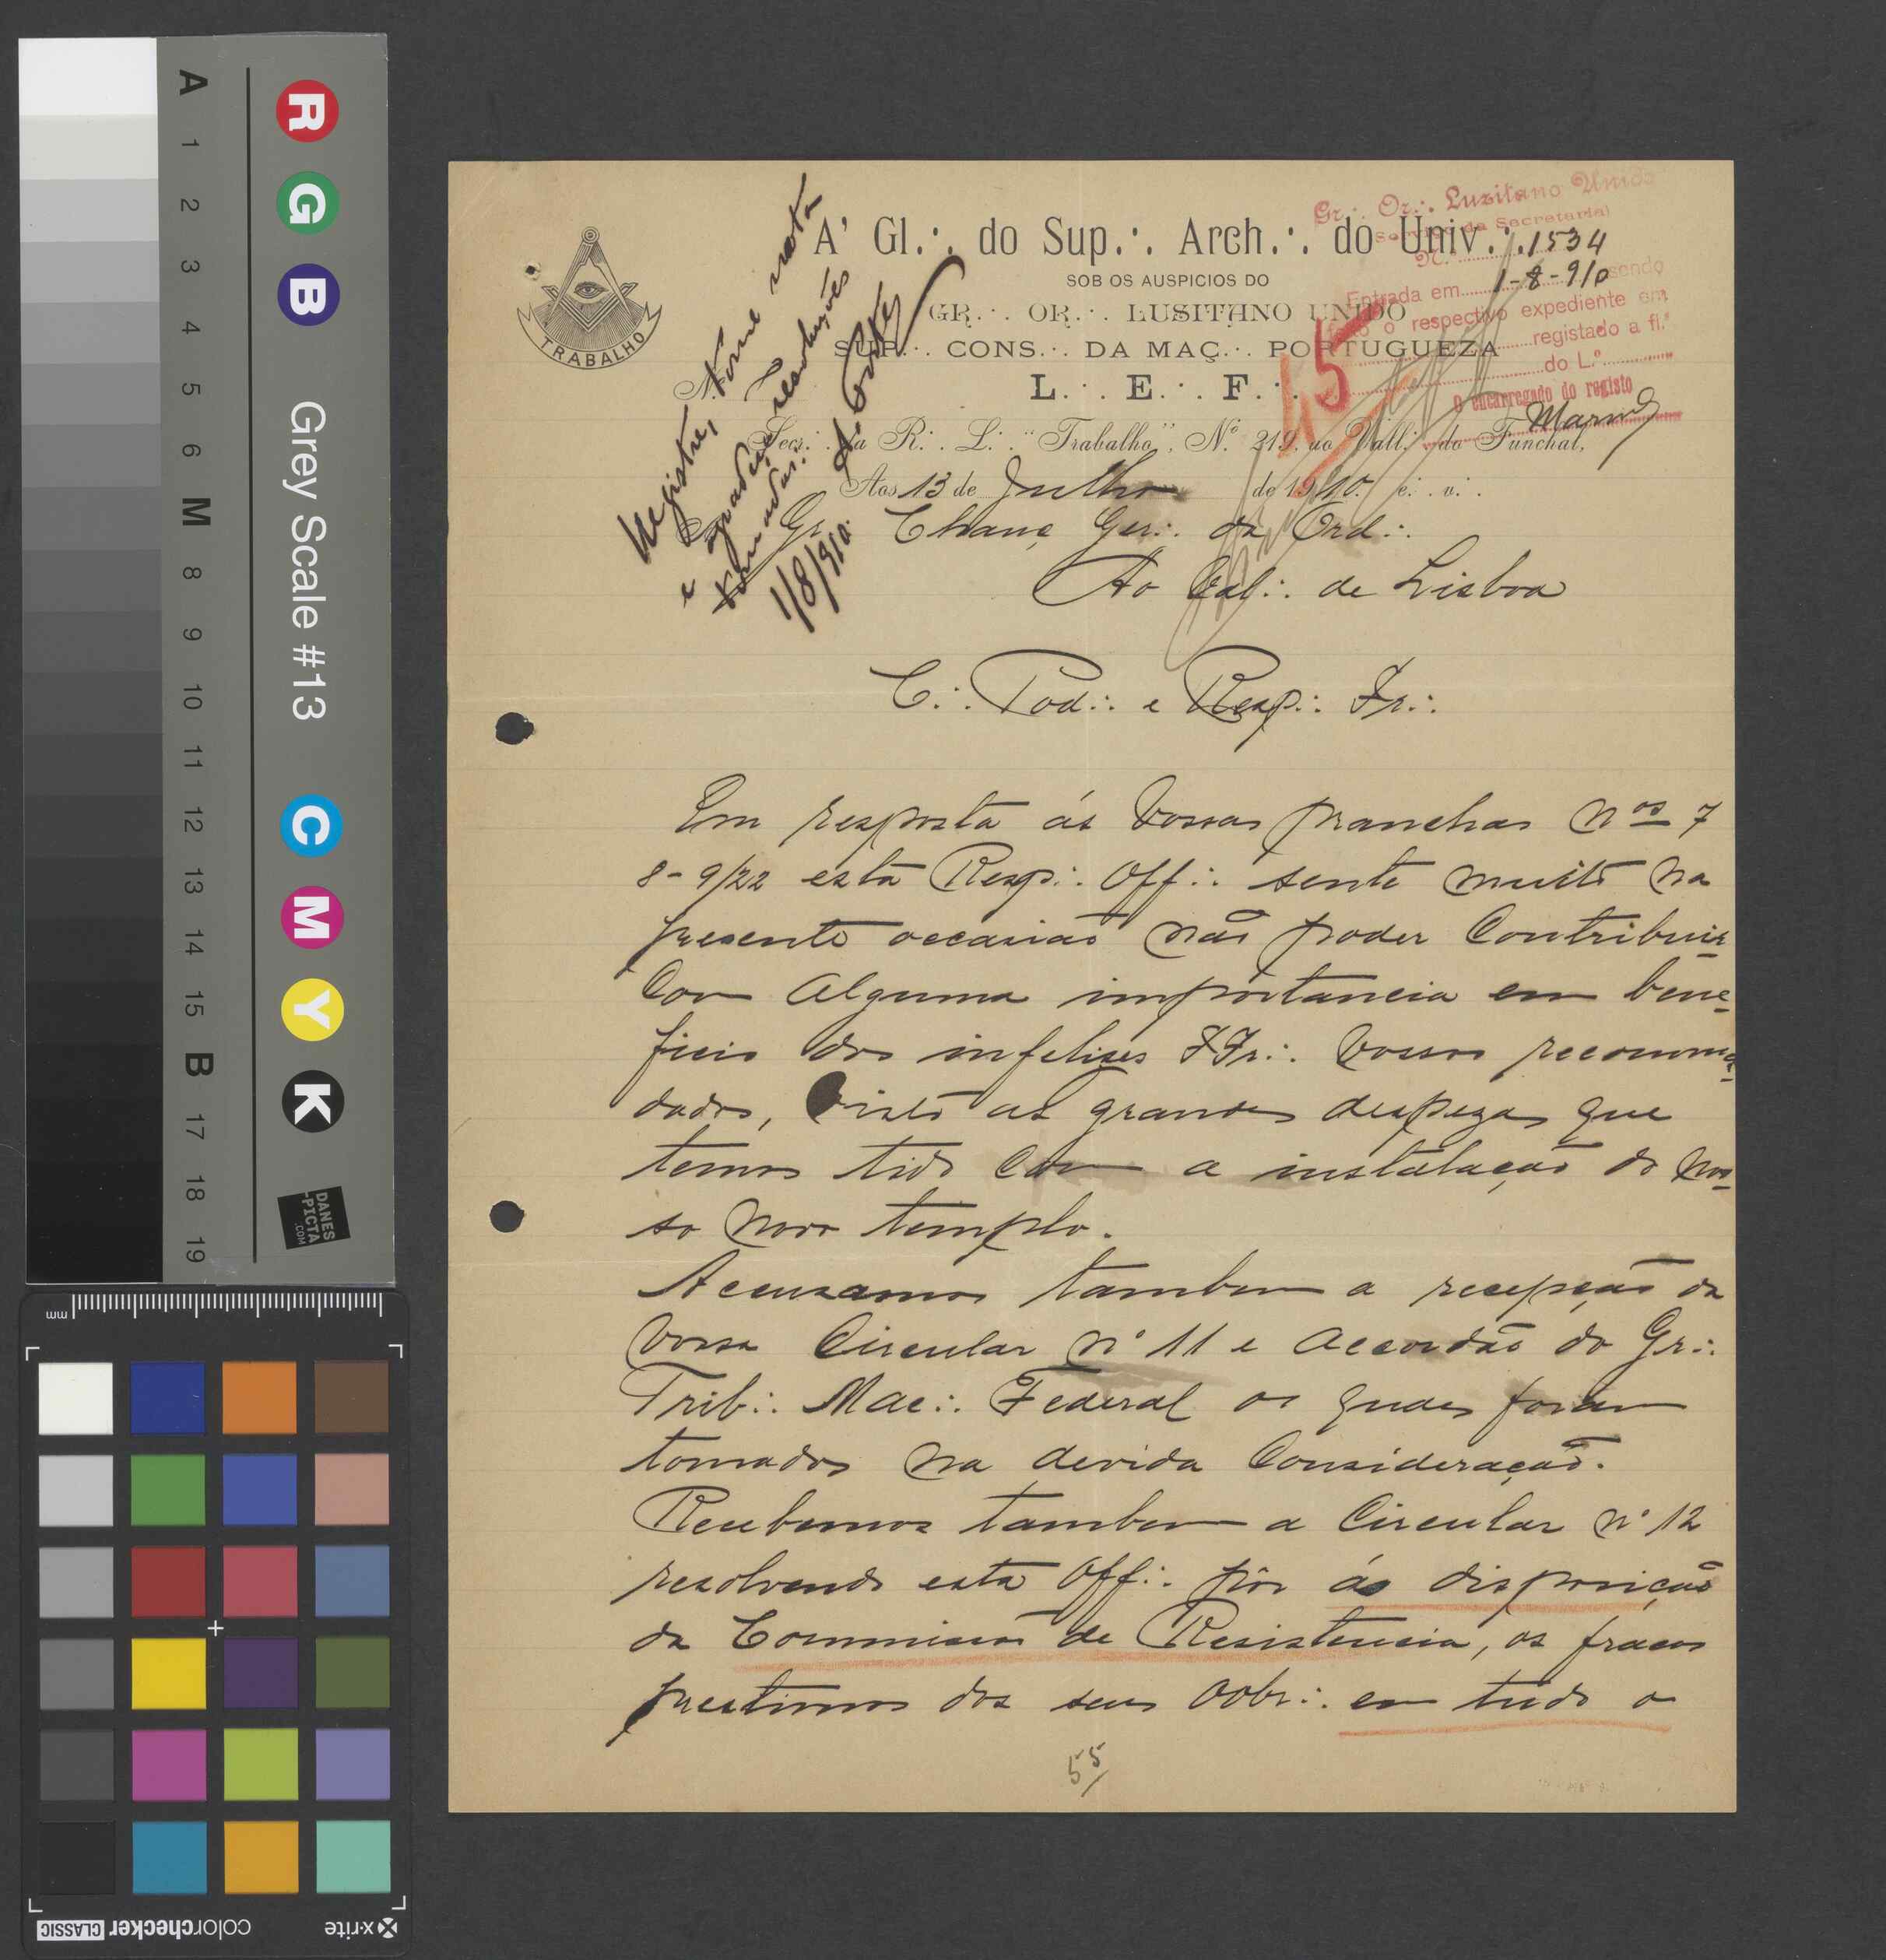 TRABALHO
A' Gl.·. do Sup.·. Arch.·. do Univ.·.
SOB OS AUSPICIOS DO
GR.·. OR.·. LUSITANO UNIDO
SUP.·. CONS.·. DA MAÇ.·. PORTUGUEZA
L.·. E.·. F.·.
Secr.·. da R.·. L.·. "Trabalho", Nº 219. ao Vall.·. do Funchal,
Aos 13 de Julho de 1910. e.·. v.·.
Gr.·. Or.·. Luzitano Unido
Serviço da Secretaria
N.º 1534
Entrada em 1-8-910 sendo
feito o respectivo expediente em
registado a fl.ª
do L.º
O encarregado do registo
15
Registre, tome nota
e agradeça resoluções
tomadas.
1/8/910.
Gr.·. Chanç Ger.·. da Ord.·.
Ao Val.·. de Lisboa
C.·. Pod.·. e Resp.·. Ir.·.
Em resposta ás vossas pranchas nos 7
8-9/22 esta Resp.·. Off.·. sente muito na
presente occasião não poder contribuir
com alguma importancia em bene-
ficio dos infelises IIr.·. vossos recommen-
dados, visto as grandes despezas que
temos tido com a instalação do nos-
so novo templo.
Accusamos tambem a recepção da
vossa Circular nº 11 e accordão do Gr.·.
Trib.·. Mac.·. Federal os quaes foram
tomados na devida consideração.
Recebemos tambem a Circular nº 12
resolvendo esta Off.·. pôr ás disposição
da Commissão de Resistencia, os fracos
prestimos dos seus Oobr.·. em tudo o
55/
A 1 2 3 4 5 6 M 8 9 10 11 12 13 14 15 B 17 18 19
R G B Grey Scale #13 C M Y K
DANES
-PICTA
.COM
mm
x-rite colorchecker CLASSIC